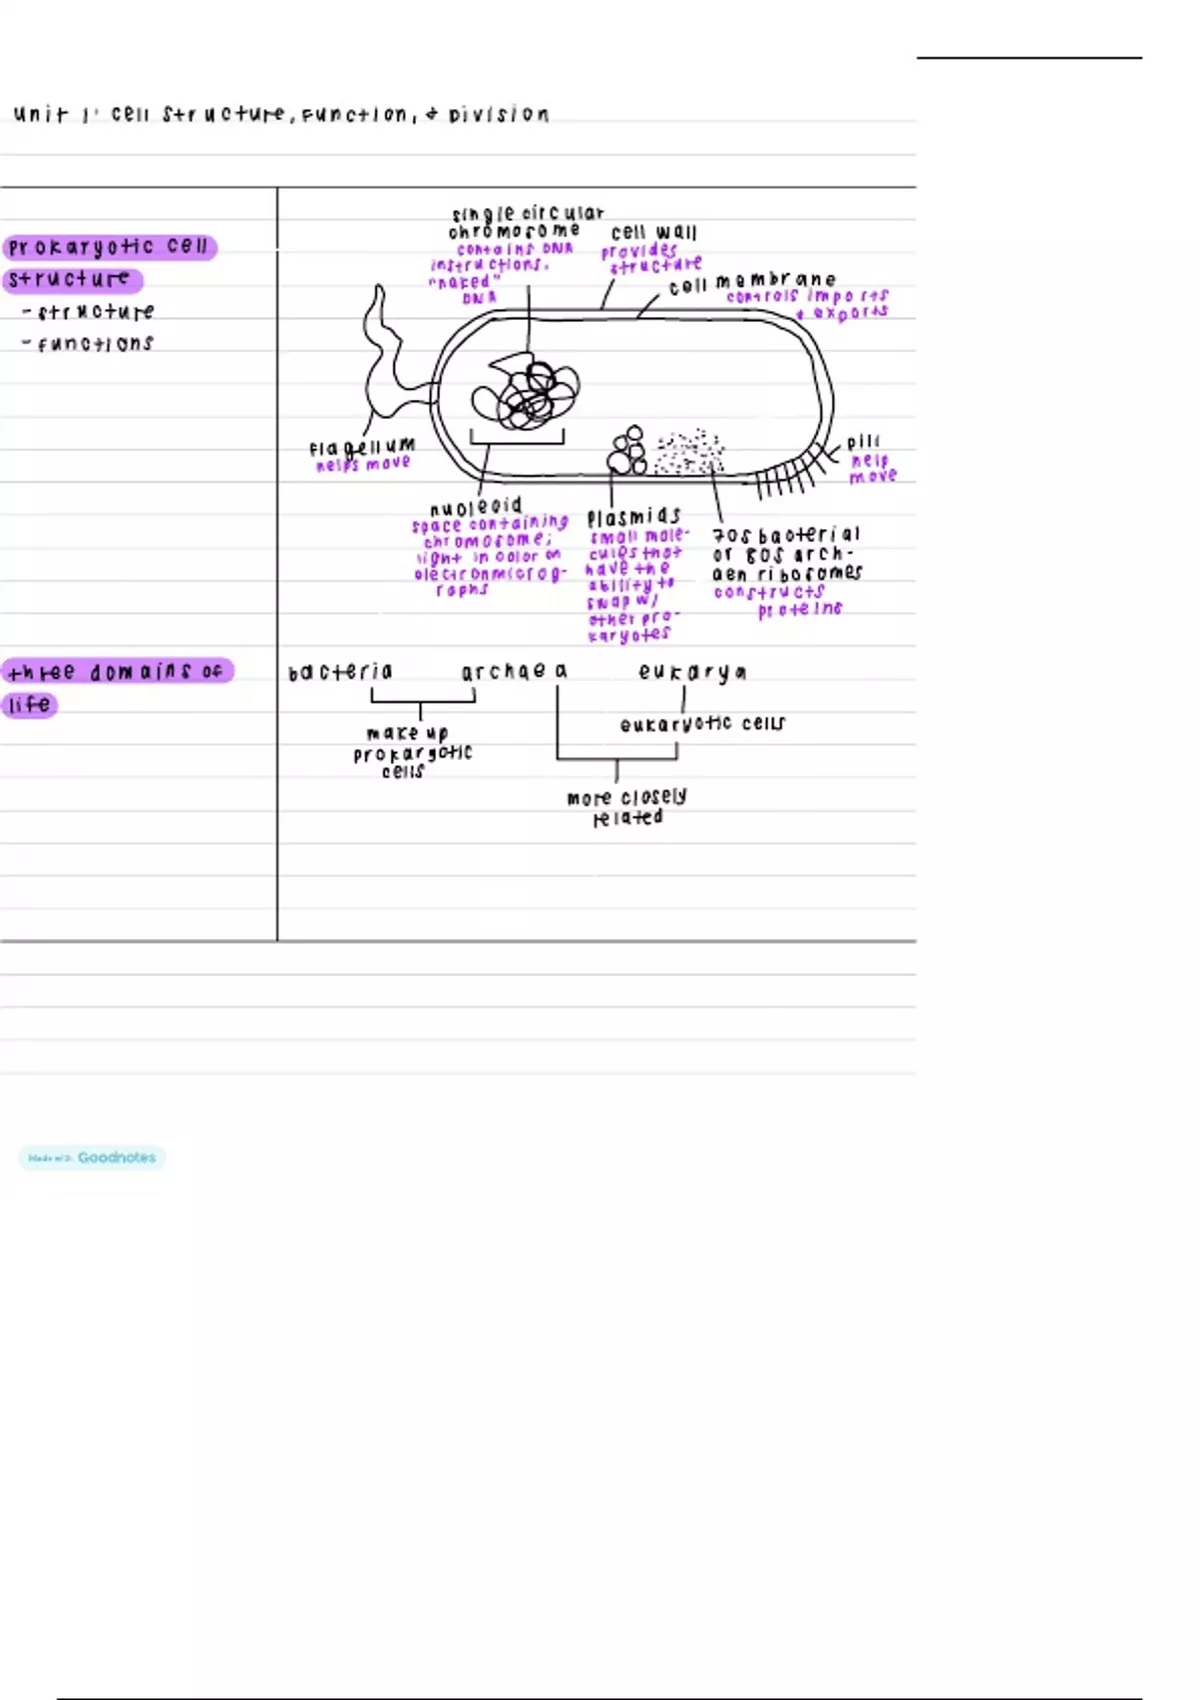 Unit 1: Cell Structure, Function, & Division
Prokaryotic cell
structure
- structure
- functions
single circular
chromosome
contains DNA
instructions,
"naked"
DNA
cell wall
provides
structure
cell membrane
controls imports
& exports
flagellum
helps move
pili
help
move
nucleoid
space containing
chromosome;
light in color on
electronmicrog-
raphs
Plasmids
small mole-
cules that
have the
ability to
swap w/
other pro-
karyotes
70s bacterial
or 80s arch-
aen ribosomes
constructs
proteins
three domains of
life
bacteria archaea eukarya
make up
prokaryotic
cells
eukaryotic cells
more closely
related
Made with Goodnotes